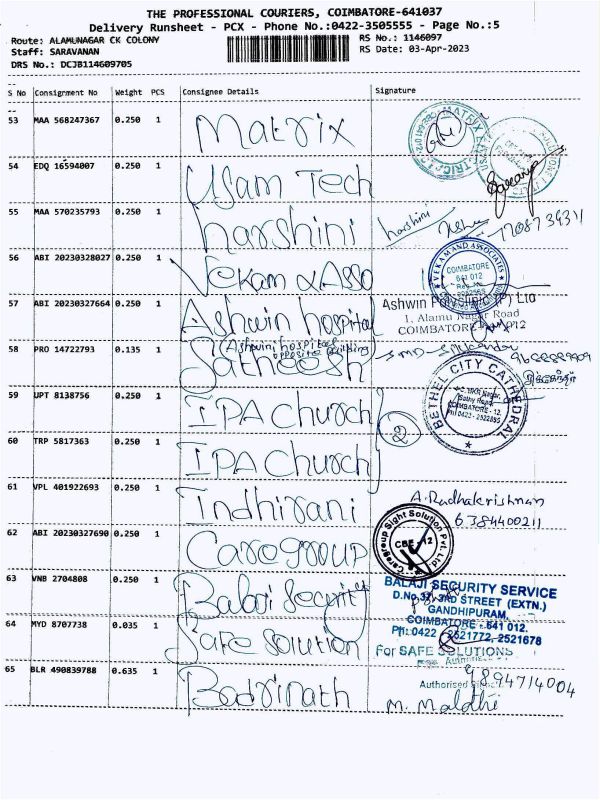 THE PROFESSIONAL COURIERS, COIMBATORE-641037
Delivery Runsheet - PCX - Phone No.:0422-3505555 - Page No.:5
Route: ALAMUNAGAR CK COLONY
RS No.: 1146097
Staff: SARAVANAN
RS Date: 03-Apr-2023
DRS No.: DCJB114609705
S No Consignment No Weight PCS Consignee Details Signature
53 MAA 568247367 0.250 1 Matrix
54 EDQ 16594007 0.250 1 Usam Tech
55 MAA 570235793 0.250 1 harshini harshini
56 ABI 20230328027 0.250 1 Vekam & Asso
VEKAM AND ASSOCIATES
COIMBATORE
641 012
57 ABI 20230327664 0.250 1 Ashwin hospital
Ashwin Polyclinic (P) Ltd
1, Alamu Nagar Road
COIMBATORE
(Ashwini hospital
opposite building)
58 PRO 14722793 0.135 1 Satheesh
59 UPT 8138756 0.250 1 IPA Church
BETHEL CITY CATHEDRAL
Sathy Road
COIMBATORE - 12.
Ph: 0422 - 2522855
2
60 TRP 5817363 0.250 1 IPA Church
61 VPL 401922693 0.250 1 Indhirani
A. Radhakrishnan
6384400211
62 ABI 20230327690 0.250 1 Caregroup
Caregroup Sight Solution Pvt. Ltd
CBE - 12
63 VNB 2704808 0.250 1 Balaji Security
BALAJI SECURITY SERVICE
D.No.37, 3RD STREET (EXTN.)
GANDHIPURAM,
COIMBATORE - 641 012.
Ph: 0422 - 2521772, 2521678
64 MYD 8707738 0.035 1 Safe Solution
For SAFE SOLUTIONS
65 BLR 490839788 0.635 1 Badrinath
9894714004
Authorised
M. Malathi